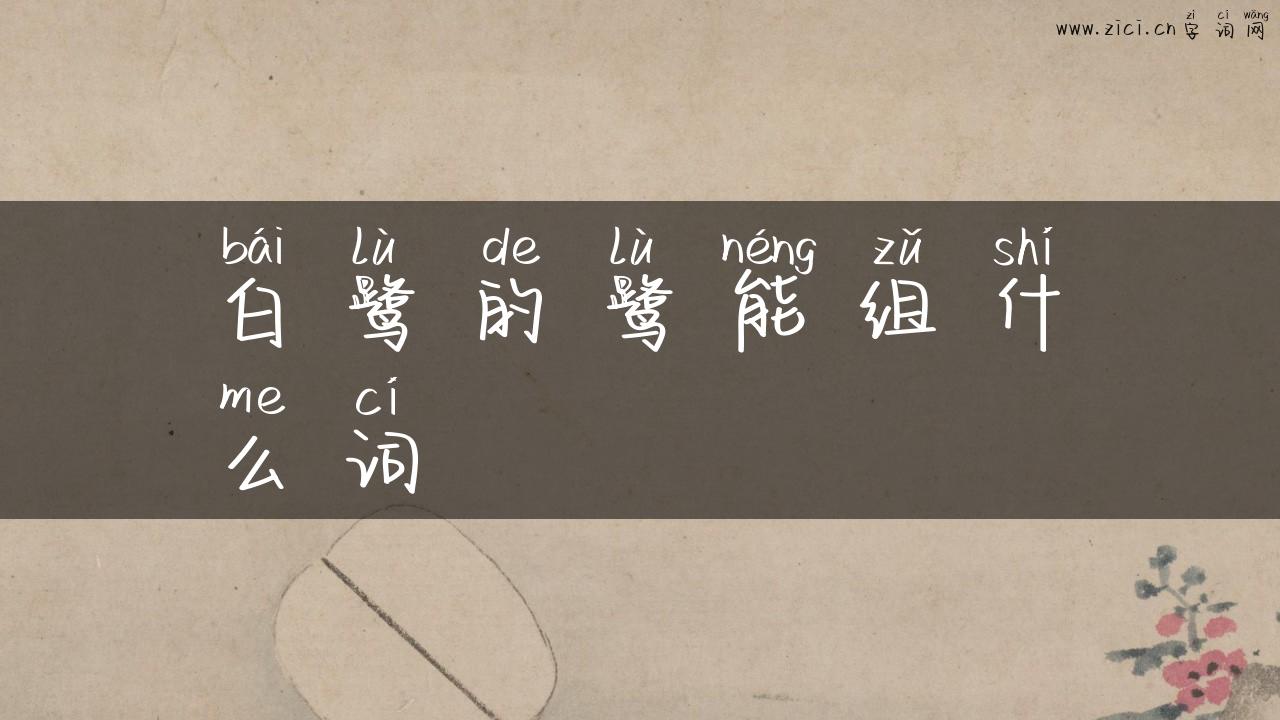 zì cí wǎng
www.zici.cn 字词网
bái lù de lù néng zǔ shí
白鹭的鹭能组什
me cí
么词